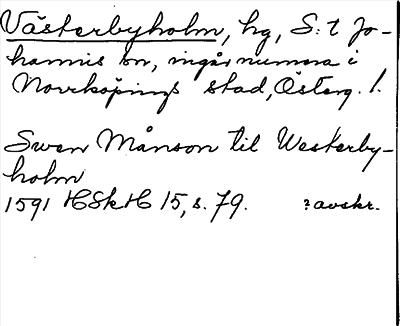 Västerbyholm, hg, S:t Jo-
hannis sn, ingår numera i
Norrköpings stad, Österg. l.
Swen Månson til Westerby-
holm
1591 HSkH 15, s. 79. ? avskr.